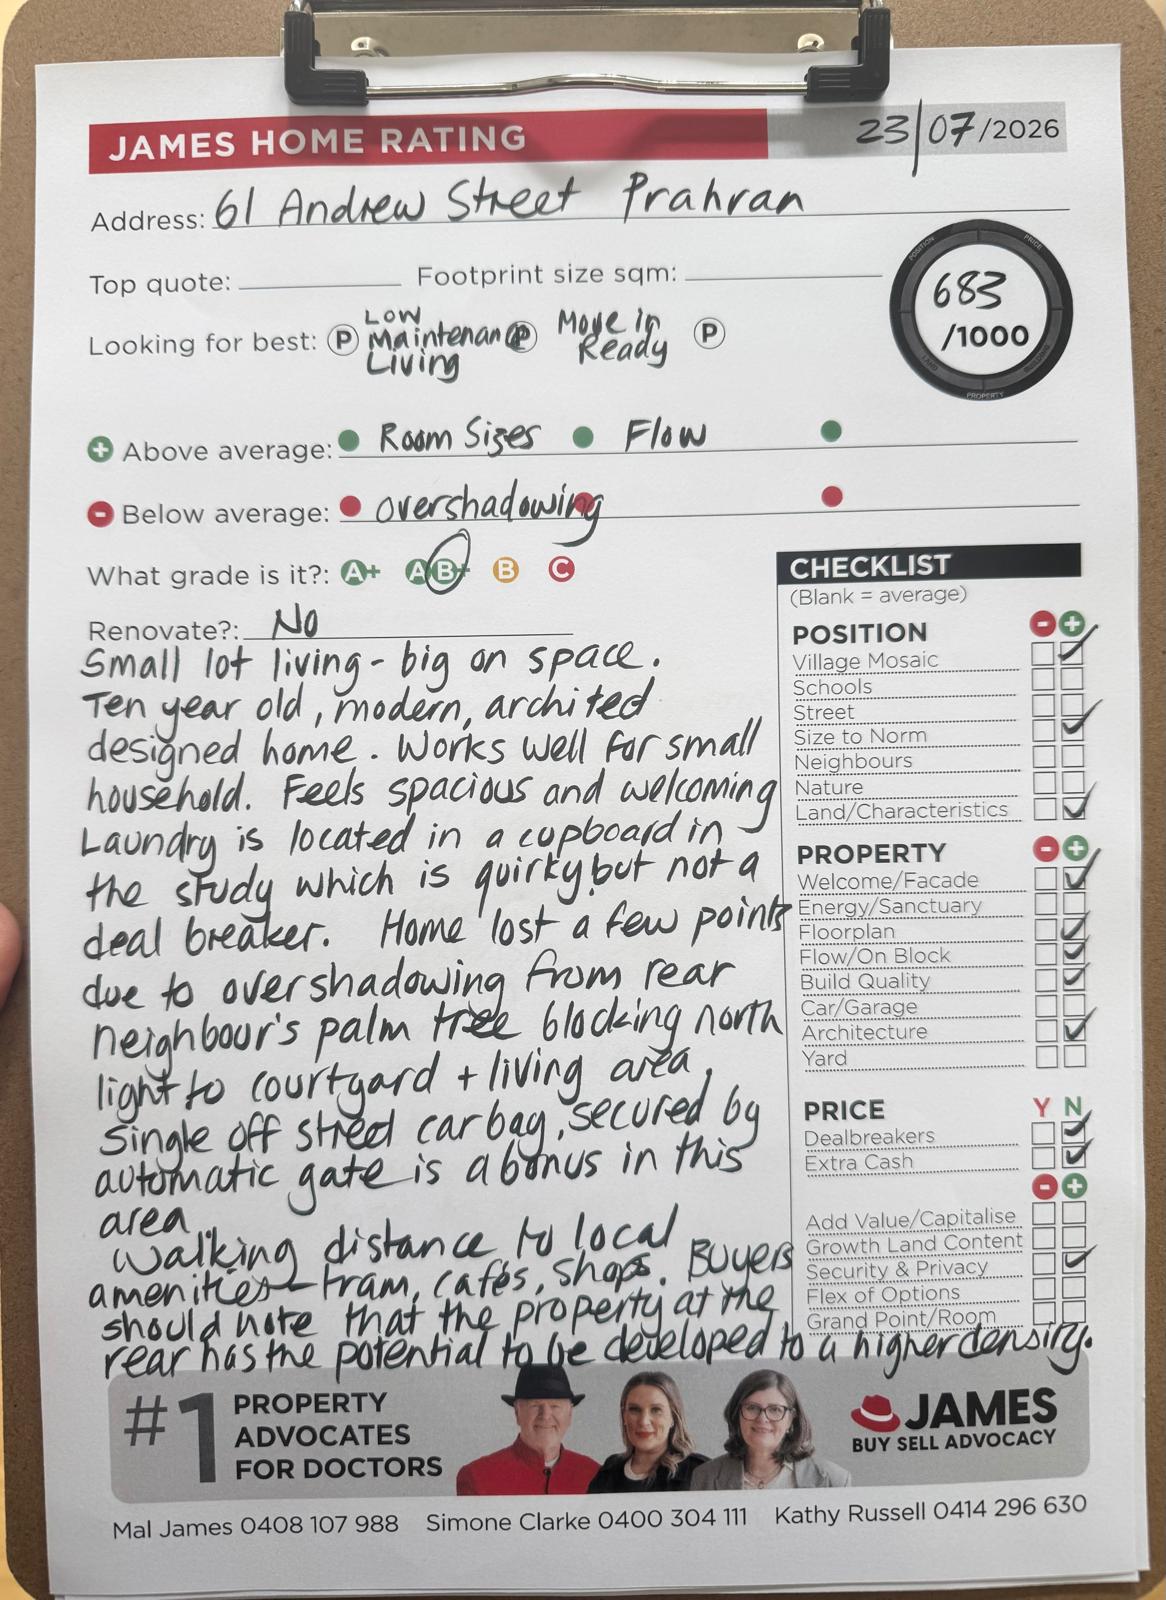 JAMES HOME RATING
23/07/2026
Address: 61 Andrew Street Prahran
Top quote: Footprint size sqm:
683
/1000
POSITION PRICE BUILDING PROPERTY LAND
Looking for best: P Low Maintenance Living P Move in Ready P
+ Above average: Room Sizes Flow
- Below average: overshadowing
What grade is it?: A+ A B+ B C
Renovate?: No
Small lot living - big on space.
Ten year old, modern, archited
designed home. Works well for small
household. Feels spacious and welcoming
Laundry is located in a cupboard in
the study which is quirky but not a
deal breaker. Home lost a few points
due to overshadowing from rear
neighbour's palm tree blocking north
light to courtyard + living area.
Single off street car bay, secured by
automatic gate is a bonus in this
area.
Walking distance to local
amenities - tram, cafés, shops. Buyers
should note that the property at the
rear has the potential to be developed to a higher density.
CHECKLIST
(Blank = average)
POSITION - +
Village Mosaic ✓
Schools
Street
Size to Norm ✓
Neighbours
Nature
Land/Characteristics ✓
PROPERTY - +
Welcome/Facade ✓
Energy/Sanctuary
Floorplan ✓
Flow/On Block ✓
Build Quality ✓
Car/Garage
Architecture ✓
Yard
PRICE Y N
Dealbreakers ✓
Extra Cash ✓
- +
Add Value/Capitalise
Growth Land Content
Security & Privacy ✓
Flex of Options
Grand Point/Room
#1 PROPERTY
ADVOCATES
FOR DOCTORS
JAMES
BUY SELL ADVOCACY
Mal James 0408 107 988 Simone Clarke 0400 304 111 Kathy Russell 0414 296 630